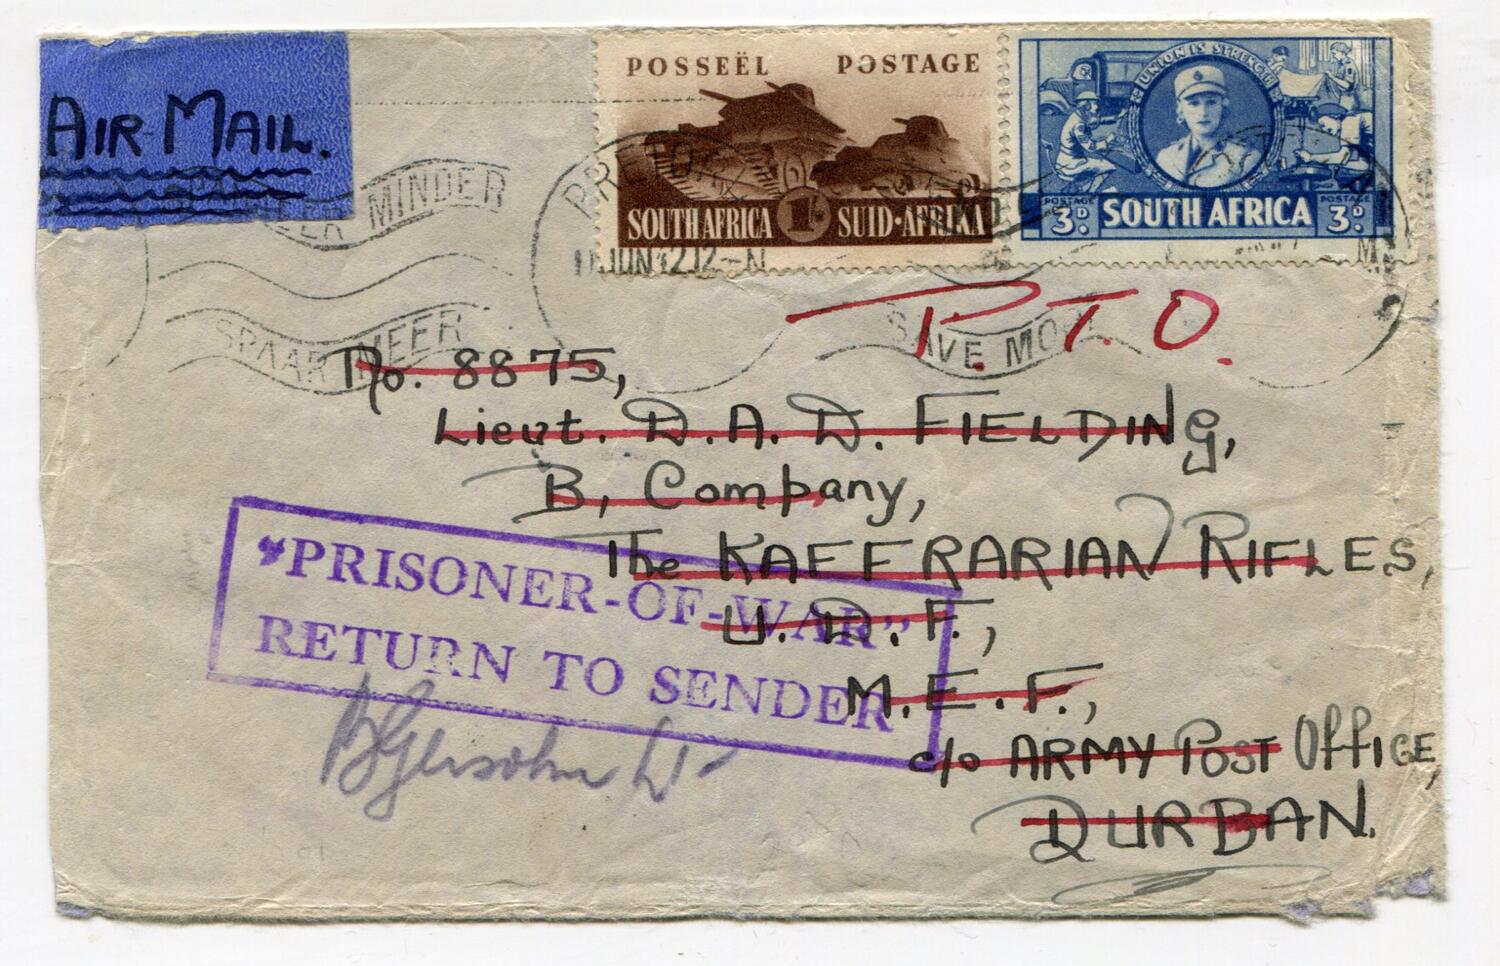 AIR MAIL.
POSSEËL POSTAGE
SOUTH AFRICA 1/- SUID-AFRIKA
UNION IS STRENGTH
POSTAGE 3D SOUTH AFRICA POSTAGE 3D
MINDER
PRETORIA
JUN 42 12-N
SPAAR MEER
SAVE MO
P.T.O.
No. 8875,
Lieut. D.A.D. FIELDING,
B, Company,
The KAFFRARIAN RIFLES,
U.D.F.,
M.E.F.,
c/o ARMY POST OFFICE,
DURBAN.
"PRISONER-OF-WAR"
RETURN TO SENDER